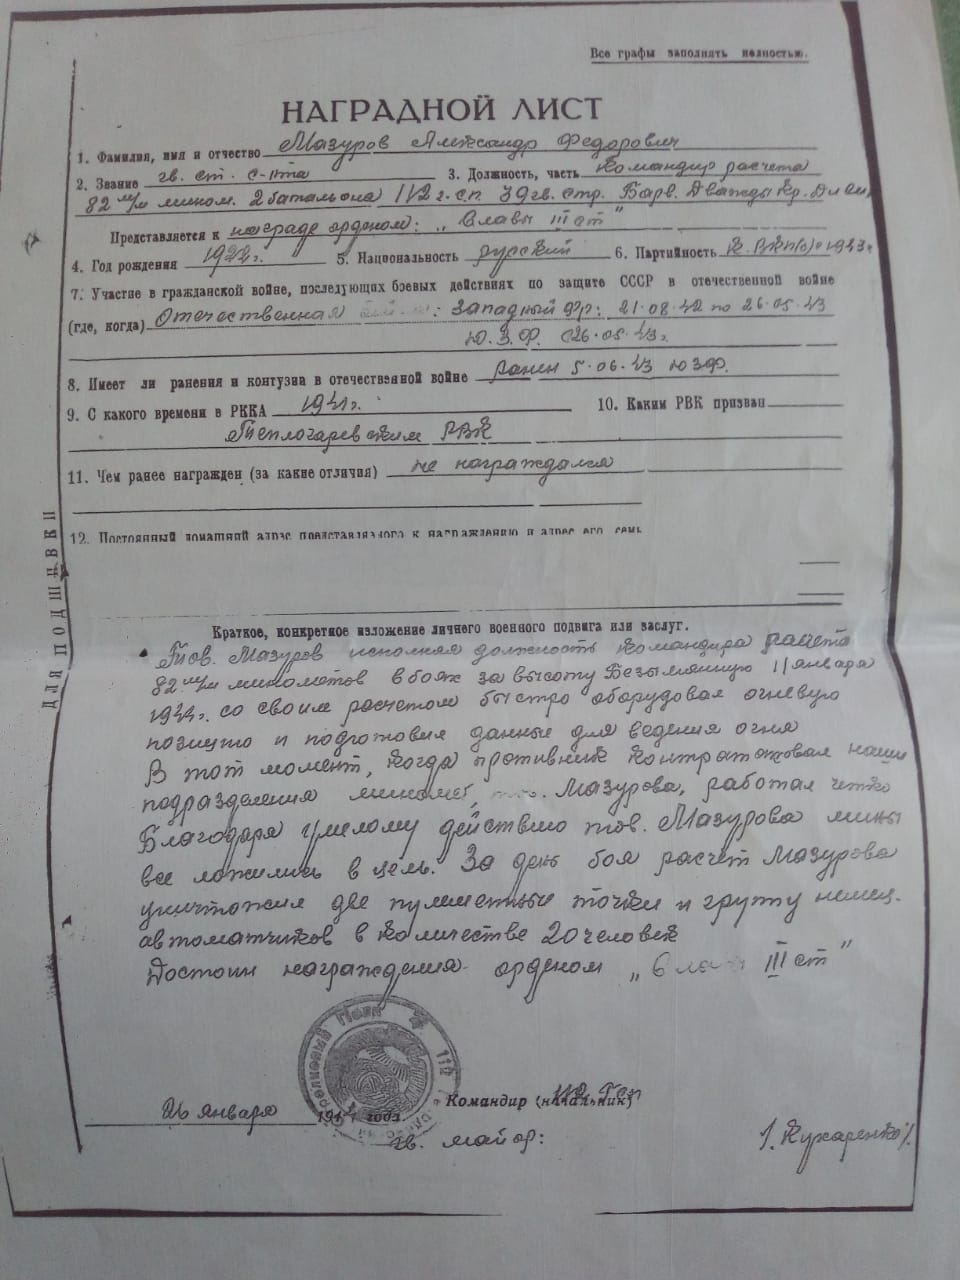 Все графы заполнять полностью.
НАГРАДНОЙ ЛИСТ
1. Фамилия, имя и отчество Мазуров Александр Федорович
2. Звание гв. ст. с-нта 3. Должность, часть Командир расчета
82 м/м мином. 2 батальона 112 г.с.п. 39 гв. стр. Барв. Дважды Кр. Зн.
Представляется к награде орденом: „Славы III ст"
4. Год рождения 1922 г. 5. Национальность русский 6. Партийность К. ВКП(б) с 1943 г
7. Участие в гражданской войне, последующих боевых действиях по защите СССР в отечественной войне
(где, когда) Отечественная : Западный фр: 21.08.42 по 26.05.43
Ю.З.Ф. с 26.05.43 г.
8. Имеет ли ранения и контузии в отечественной войне Ранен 5.06.43 ЮЗФ.
9. С какого времени в РККА 1941 г. 10. Каким РВК призван
Теплогаревским РВК
11. Чем ранее награжден (за какие отличия) не награждался
12. Постоянный домашний адрес представляемого к награждению и адрес его семь
ДЛЯ ПОДШИВКИ
Краткое, конкретное изложение личного военного подвига или заслуг.
Тов. Мазуров исполняя должность Командира расчета
82 м/м минометов в боях за высоту Безымянную 11 января
1944 г. со своим расчетом быстро оборудовал огневую
позицию и подготовил данные для ведения огня
В тот момент, когда противник контратаковал наши
подразделения миномет, Мазурова, работал четко
Благодаря умелому действию тов. Мазурова мины
все ложились в цель. За день боя расчет Мазурова
уничтожил две пулеметные точки и группу немец.
автоматчиков в количестве 20 человек
Достоин награждения орденом „Славы III ст"
Стрелковый Полк 112
Командир (начальник) 112 гсп
26 января 1944 года
гв. майор: /. Кухаренко /.